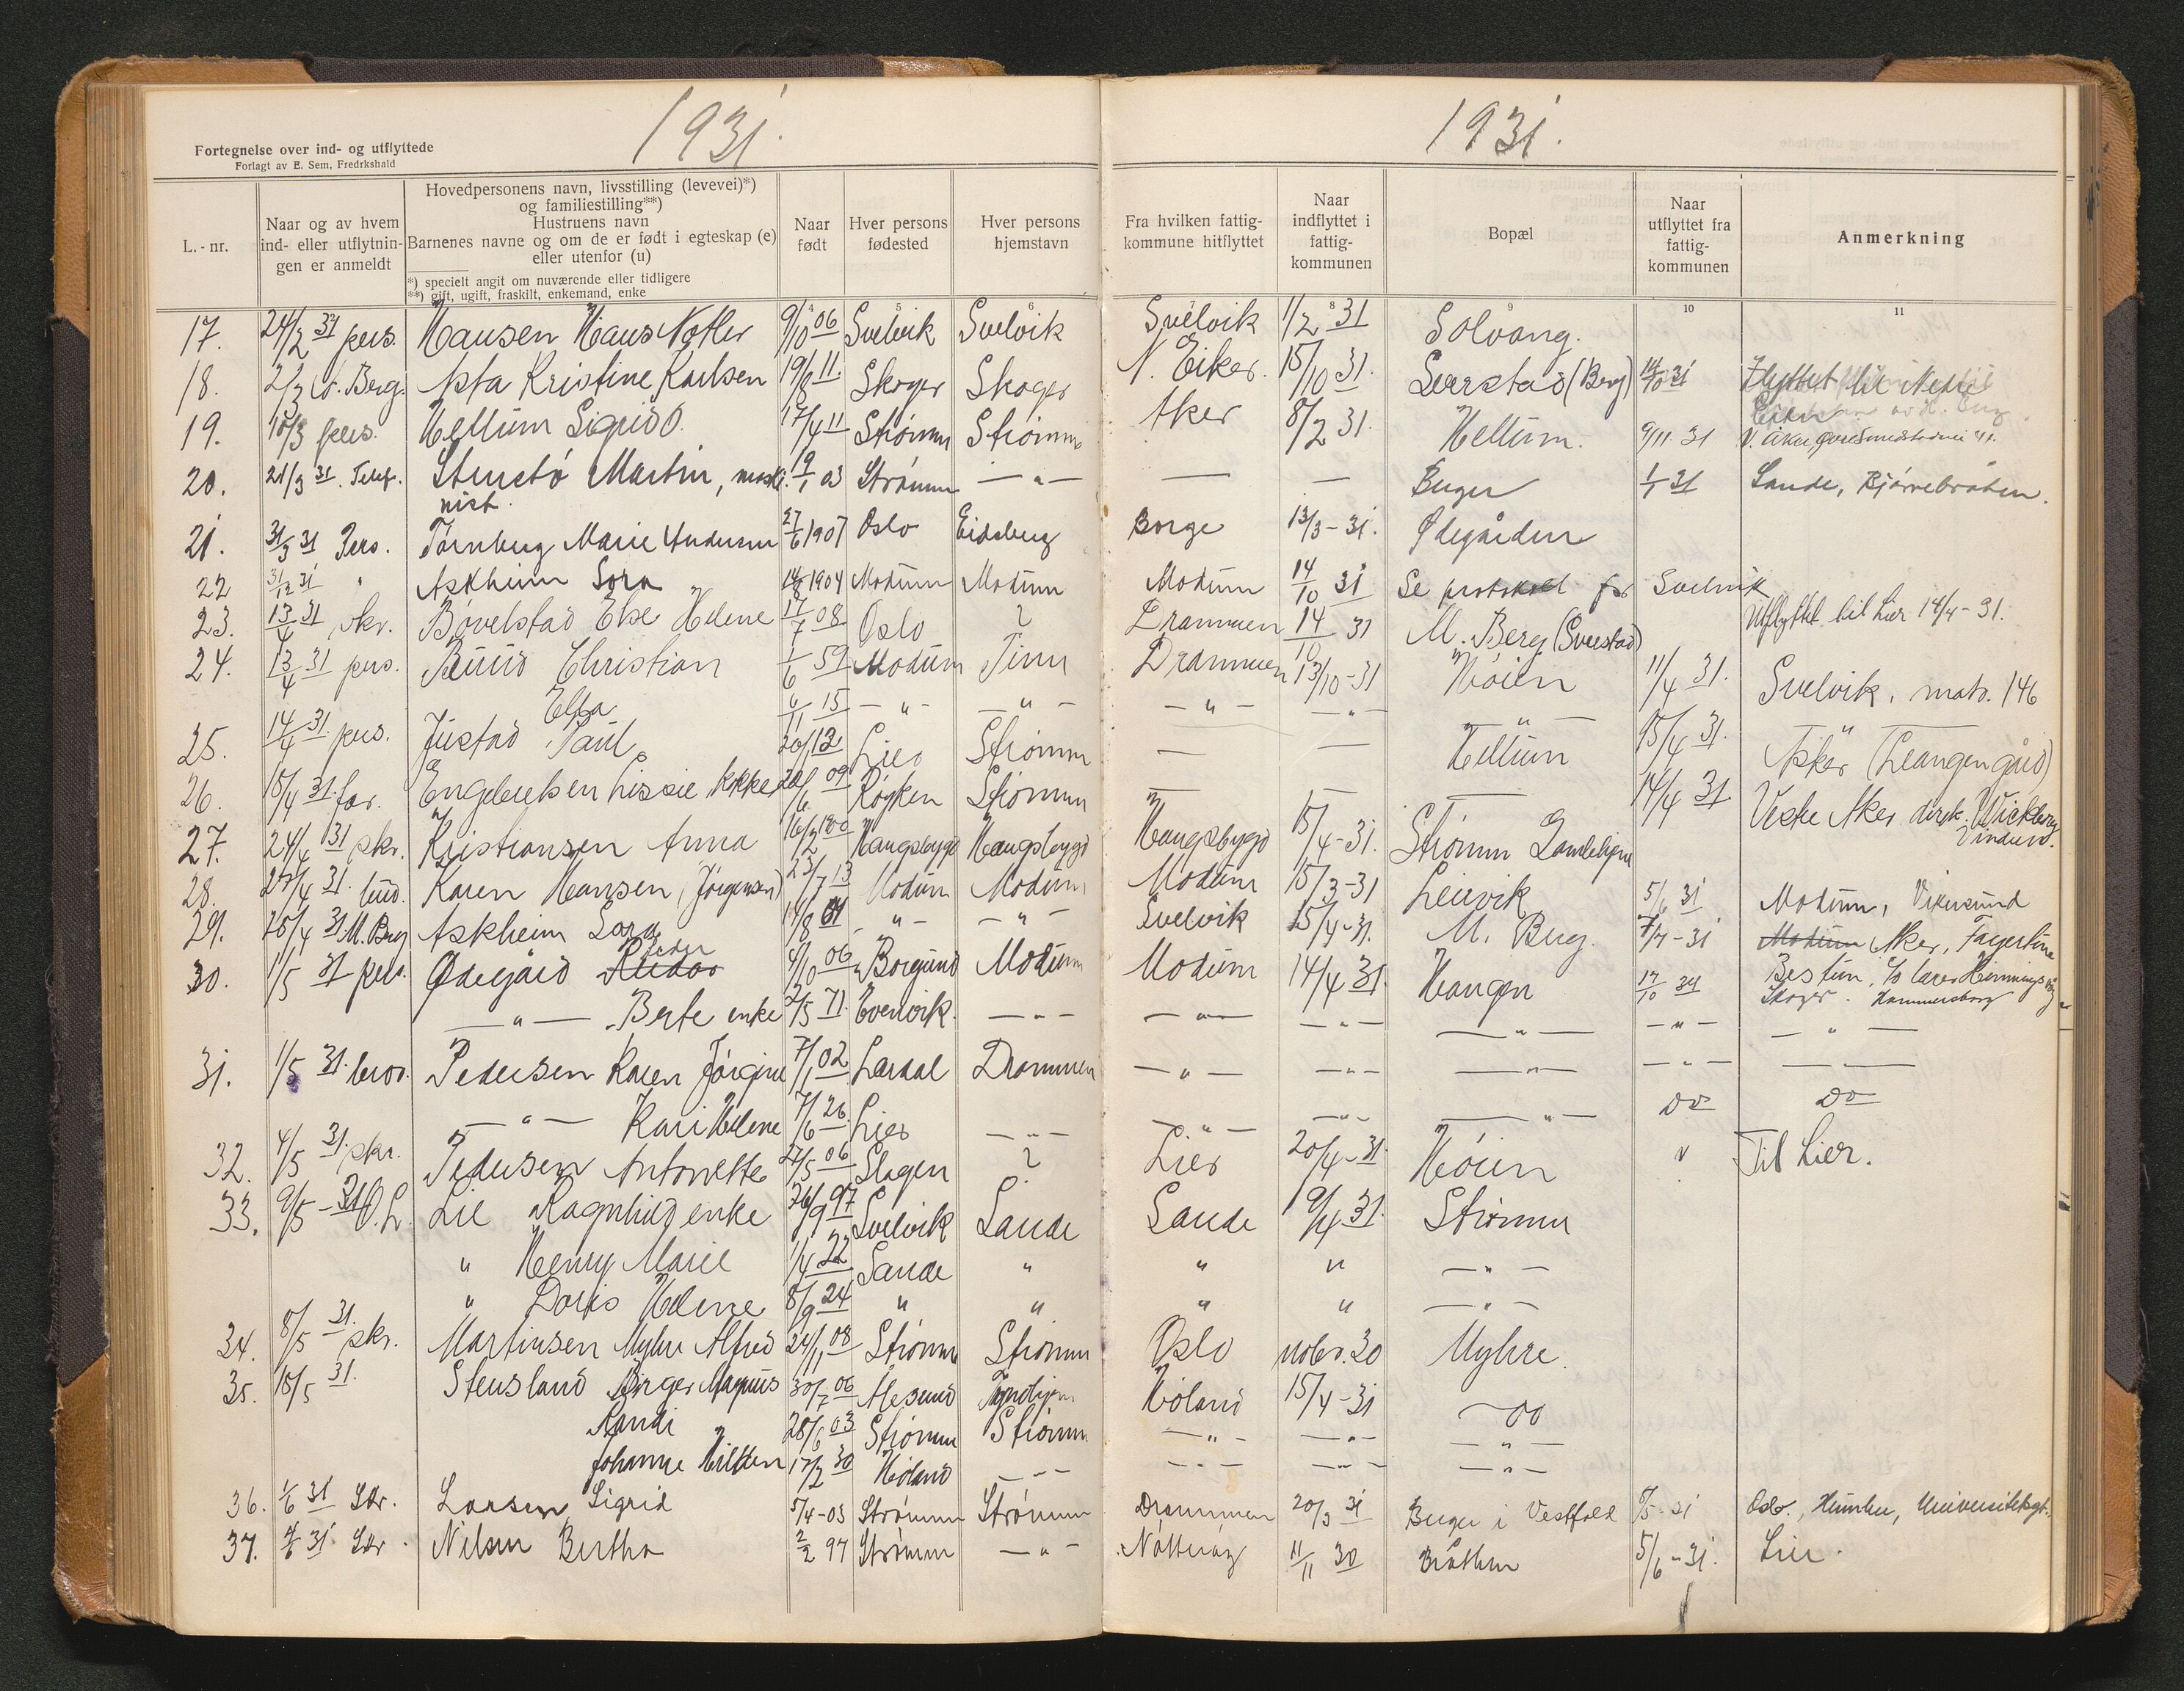 1931.
1931.
Fortegnelse over ind- og utflyttede
Forlagt av E. Sem, Fredrkshald
L.-nr.
Naar og av hvem ind- eller utflytnin- gen er anmeldt
Hovedpersonens navn, livsstilling (levevei)*)
og familiestilling**)
Hustruens navn
Barnenes navne og om de er født i egteskap (e)
eller utenfor (u)
*) specielt angit om nuværende eller tidligere
**) gift, ugift, fraskilt, enkemand, enke
Naar født
Hver persons fødested
Hver persons hjemstavn
Fra hvilken fattig- kommune hitflyttet
Naar indflyttet i fattig- kommunen
Bopæl
Naar utflyttet fra fattig- kommunen
Anmerkning
5 6 8 9 10 11
17. 24/2 31 pers. Hansen Hans 9/10 06 Svelvik Svelvik Svelvik 1/2 31 Solvang.
18. 2/3 Berg. Asta Kristine Karlsen 19/8 11. Skoger Skoger N. Eiker. 15/10 31. (Berg) 14/10 31 Flyttet til Nedre
Eiker
19. 10/3 pers. Hellum Sigrid O. 17/4 11 Strømm Strømm Aker 8/2 31. Hellum. 9/11. 31 V. Aker
20. 21/3 31. Telef. Martin, maski- 19/1 03 Strømm — " — — — Berger 1/1 31 Sande, Bjørnebråten.
nist.
21. 31/3 31 Pers. Marie Andersen 27/6 1907 Oslo Eidsberg Borge 13/3 - 31. Ødegården
22 31/12 31 " Askheim Sora 14/8 1904 Modum Modum Modum 14/10 31 Se protokoll for Svelvik
23. 13/4 31 skr. Bøvelstad Else Helene 17/7 08 Oslo ? Drammen 14/10 31 M. Berg (Sverstad) Utflyttet til Lier 14/4 - 31.
24. 13/4 31 pers. Christian 1/6 59 Modum Tinn Drammen 13/10 - 31 Høien 11/4 31. Svelvik, matr. 146
Elsa 6/11 15 — " — — " — — " — — " — — " —
25. 14/4 31. pers. Justad Paul 20/1 12 Lier Strømm — — Hellum 15/4 31. Asker (Leangen gård)
26. 15/4 31. far. Engebretsen Lissie 09 Røyken Strømm — — — 14/4 31 Vestre Aker
Vinderen.
27. 24/4 31 skr. Kristiansen Anna 16/2 1900 Haugsbygd Haugsbygd Haugsbygd 15/4 - 31. Strømm
28. 25/4 31. bud. Karen Hansen (Jørgensen) 23/7 13 Modum Modum Modum 15/3 - 31 Leirvik 5/6 31 Modum, Vikersund
29. 25/4 31. M. Berg Askheim Sora 14/8 04 — " — — " — Svelvik 15/4 - 31. M. Berg. 7/7 - 31 Modum Aker,
30. 1/5 31 pers. Ødegård Reidar 4/10 06 Borgund Modum Modum 14/4 31. Haugen 17/10 31 Bestum,
Skoger. Hammersborg
— " — Berte enke 2/5 71. — " — — " — — " — — " — — " — — " —
31. 1/5 31. Pedersen Karen Jørgine 7/1 02 Lardal Drammen — " — — " — — " — — " — — —
— " — Kari Helene 7/6 26. Lier — " — — " — — " — — " — Do Do
32. 4/5 31. skr. Pedersen Antonette 06 Slagen ? Lier 20/4 - 31. Høien " Til Lier.
33. 9/5 - 31 O.L. Lie Ragnhild enke 26/9 97 Svelvik Sande Sande 9/4 31. Strømm
" Henny Marie 1/4 22 Sande " " " — " —
" Doris Helene 8/9 24 " " " " — " —
34. 8/5 31. skr. Martinsen Myhre Alfred 24/11 08 Strømm Strømm Oslo nobr. 30 Myhre.
35. 18/5 31. Stensland Birger Magnus 30/7 06 Ålesund Høland 15/4 - 31 Do
Randi 28/6 03 Strømm Strømm — " — — " — — " —
Johanne 17/2 30 Høland — " — — " — — " — — " —
36. 1/6 31 Skr. Larsen Sigrid 5/4 - 03 Strømm Strømm Drammen 20/3 31 Berger i Vestfold 8/5 - 31 Oslo, Universitetsgt.
37. 31 Skr. Nilsen Bertha 2/2 97 Strømm — " — Nøtterøy 11/11 30 Bråthen 5/6 - 31. Lier.